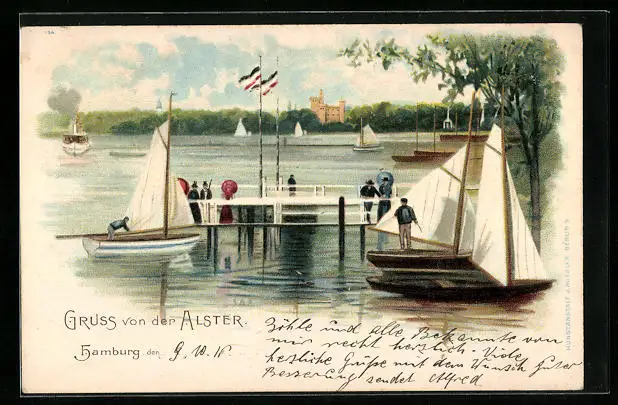 GRUSS von der ALSTER.
Hamburg den 9. 10.
Böhle und alle Bekannte von
mir recht herzlich. Viele
herzliche Grüße mit dem Wunsch guter
Besserung sendet Alfred
KUNSTANSTALT J. MIESLER BERLIN S.